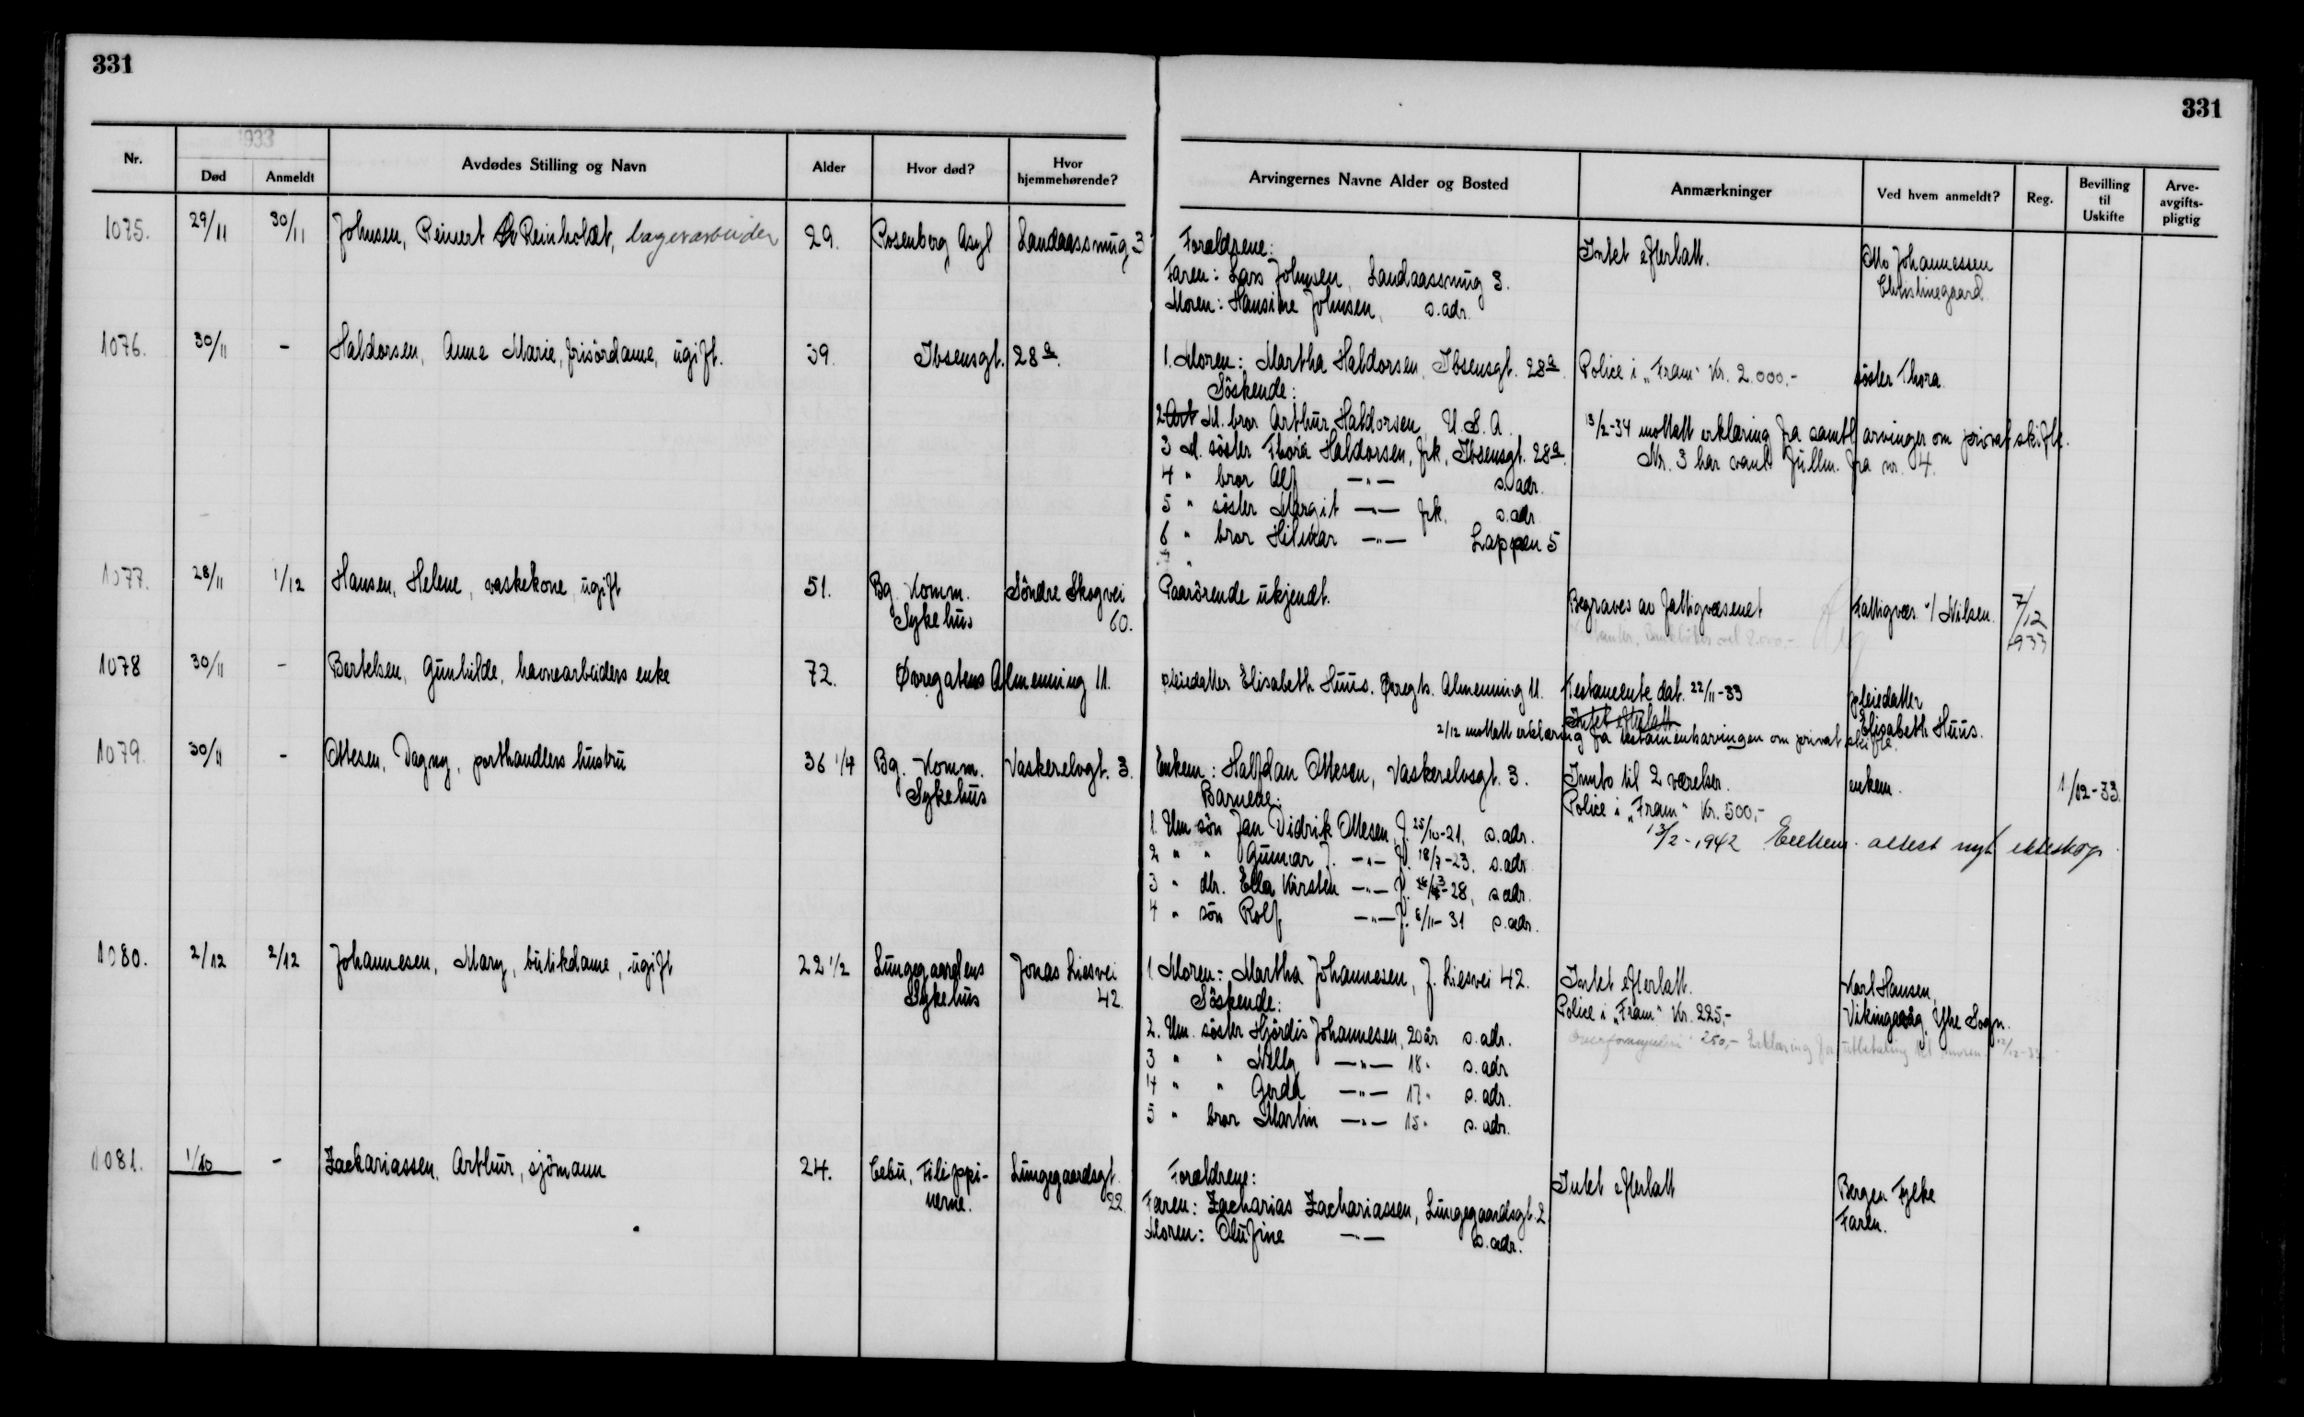 331
331
Nr.
1933
Død
Anmeldt
Avdødes Stilling og Navn
Alder
Hvor død?
Hvor hjemmehørende?
Arvingernes Navne Alder og Bosted
Anmærkninger
Ved hvem anmeldt?
Reg.
Bevilling til Uskifte
Arve-avgifts-pligtig
1075. 29/11 30/11 Johnsen, Reinert Reinholdt, lagerarbeider 29. Rosenberg Asyl Landaassmug 3
Forældrene:
Faren: Lars Johnsen, Landaassmug 3.
Moren: Hansine Johnsen, s.adr.
Intet efterlatt.
Otto Johannessen
Christinegaard
1076. 30/11 - Haldorsen, Anna Marie, frisördame, ugift. 39. Ibsensgt. 28a.
1. Moren: Martha Haldorsen, Ibsensgt. 28a.
Söskende:
2 M. bror Arthur Haldorsen, U.S.A.
3 M. söster Thora Haldorsen, frk, Ibsensgt. 28a.
4 " bror Alf —"— s.adr.
5 " söster Margit —"— frk. s.adr.
6 " bror Hilmar —"— Lappen 5
Police i „Fram" Kr. 2.000.-
söster Thora
13/2-34 mottatt erklæring fra samtl. arvinger om privat skifte.
Nr. 3 har fullm. fra nr. 4.
1077. 28/11 1/12 Hansen, Helene, vaskekone, ugift 51. Bg. Komm. Söndre Skogvei
Sykehus 60.
Paarörende ukjendt.
Begraves av fattigvæsenet
Fattigvæs. v/ Nilsen.
7/12
1933
1078 30/11 - Bertelsen, Gunhilde, havnearbeiders enke 72. Øvregatens Almenning 11.
pleiedatter Elisabeth Huus, Øvregts. Almenning 11.
Testamente dat. 22/11-33
Intet efterlatt
pleiedatter
Elisabeth Huus.
2/12 mottatt erklæring fra testamentarvingen om privat skifte.
1079. 30/11 - Ottesen, Dagny, porthandlers hustru 36 1/4 Bg. Komm. Vaskerelvgt. 3.
Sykehus
Enkem: Halfdan Ottesen, Vaskerelvsgt. 3.
Barnene:
1. Um sön Jan Didrik Ottesen, f. 25/10-21, s.adr.
2 " " Gunnar J. —"— f. 18/7-23, s.adr.
3 " dtr. Ella Kirsten —"— f. 3-28, s.adr.
4 " sön Rolf —"— f. 6/11-31 s.adr.
Innbo til 2 værelser.
Police i „Fram" Kr. 500,-
enkem.
1/12-33.
13/2-1942 Enkem. attest nyt ekteskap.
1080. 2/12 2/12 Johannesen, Mary, butikdame, ugift 22 1/2 Lungegaardens Jonas Liesvei
Sykehus 42.
1 Moren: Martha Johannesen, J. Liesvei 42.
Söskende:
2. Um. söster Hjördis Johannesen, 20 år s.adr.
3 " " Nelly —"— 18 " s.adr
4 " " Gerda —"— 17 " s.adr.
5 " bror Martin —"— 15 " s.adr.
Intet efterlatt.
Police i „Fram" Kr. 225,-
250,- Erklæring
Karl Hansen,
Vikingvåg, Yhe Sogn.
1081. 1/10 - Zackariassen, Arthur, sjömann 24. Cebu, Filippi- Lungegaardsgt.
nerne. 22
Forældrene:
Faren: Zacharias Zachariassen, Lungegaardsgt. 2
Moren: Olufine —"— s.adr.
Intet efterlatt
Bergen Fylke
Faren.